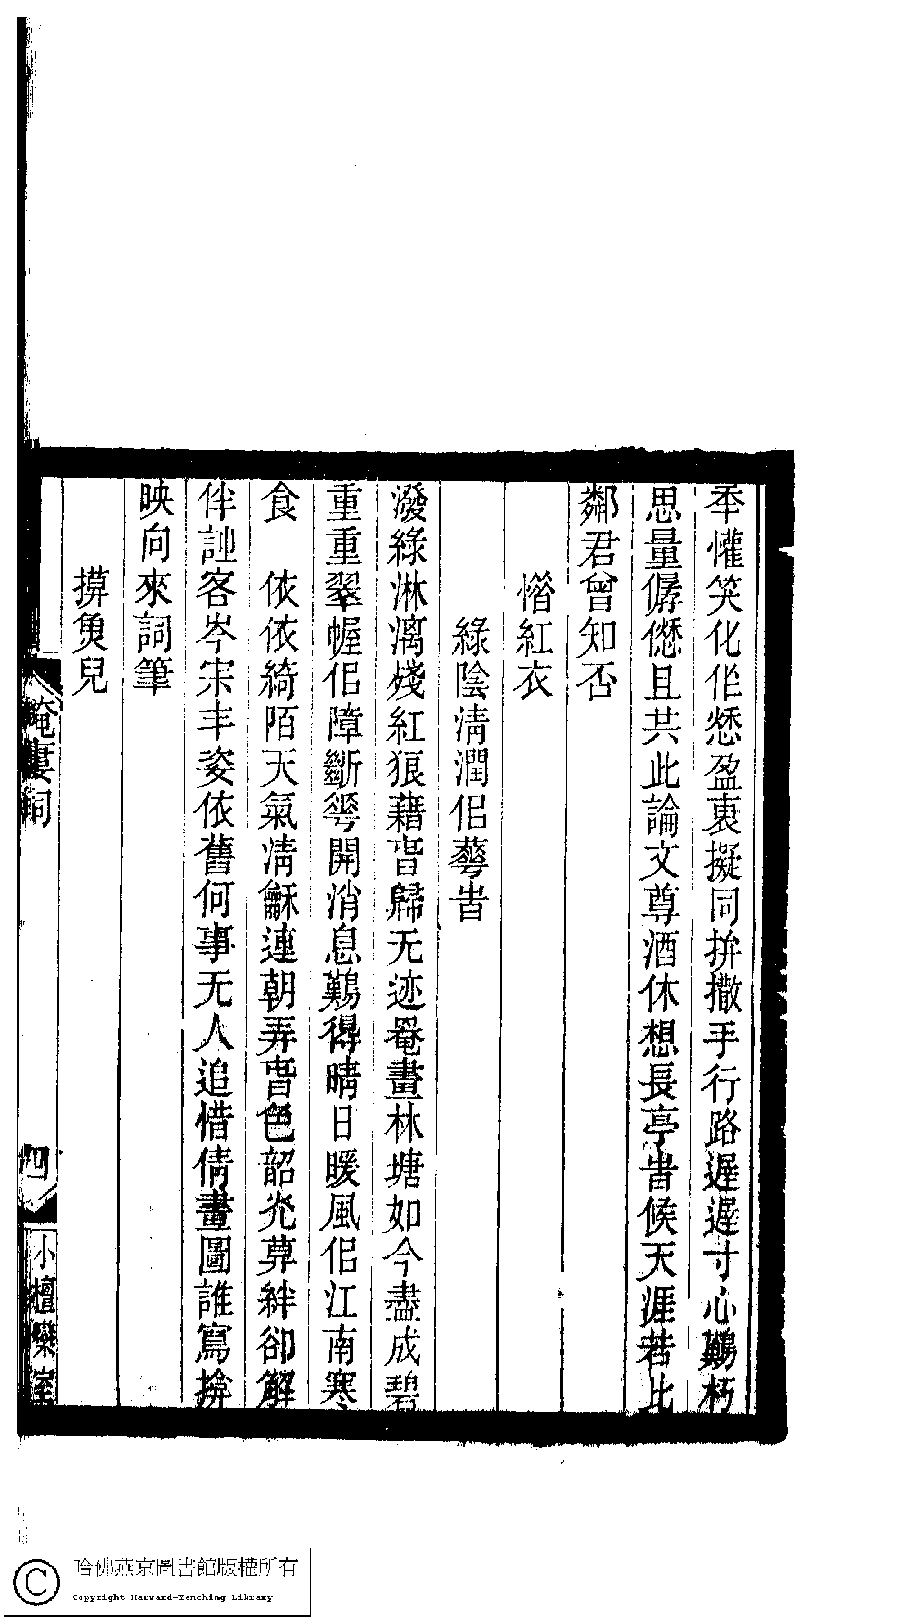 本懽笑化作愁盈衷擬同拚撒手行路遲遲寸心難朽
思量僝僽且共此論文尊酒休想長亭旹候天涯若比
鄰君曾知否
惜紅衣
綠陰清潤佀蕚旹
潑綠淋漓殘紅狼藉旾歸无迹罨畫林塘如今盡成碧
重重翠幄佀障斷蕚開消息難得晴日暖風佀江南寒
食　依依綺陌天氣清龢連朝弄旾色韶光莫絆卻解
伴訕客岑宗丰姿依舊何事无人追惜倩畫圖誰寫掩
映向來詞筆
摸魚兒
淹婁詞
四
小檀欒室
哈佛燕京圖書館版權所有
Copyright Harvard-Yenching Library